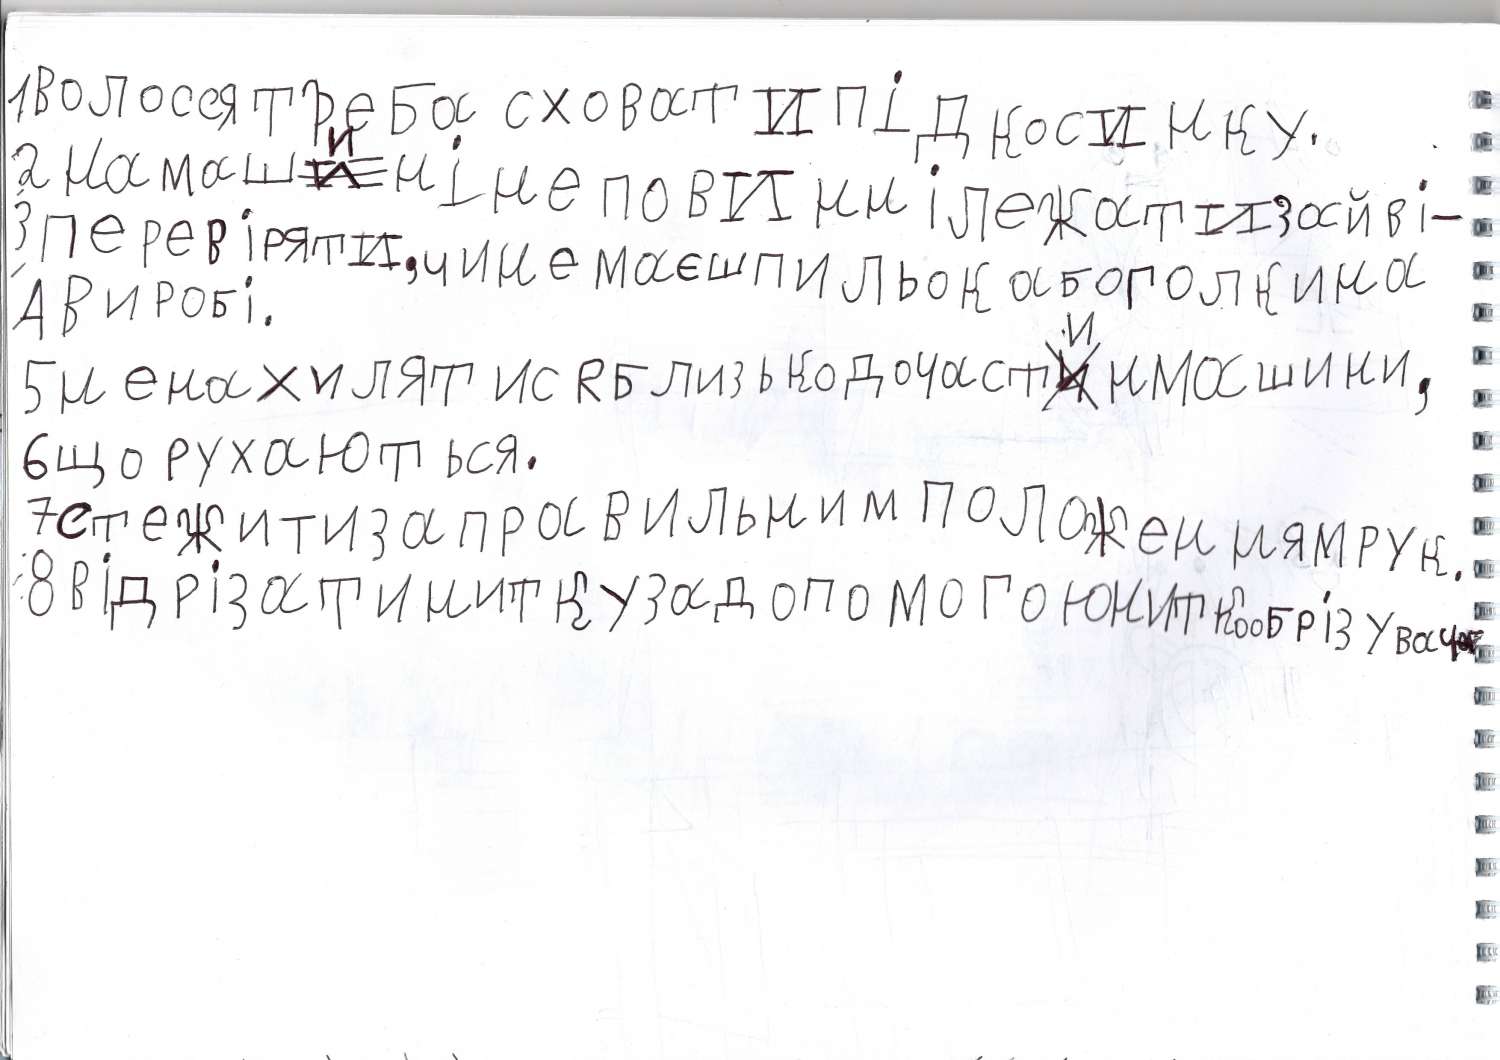 1 Волосся треба сховати під косинку.
2 На машині не повинні лежати зайві-
3 Перевіряти, чи немає шпильок або голки на
4 виробі.
5 не нахилятися близько до частин машини,
6 що рухаються.
7 стежити за правильним положенням рук.
8 відрізати нитку за допомогою нитко обрізувача